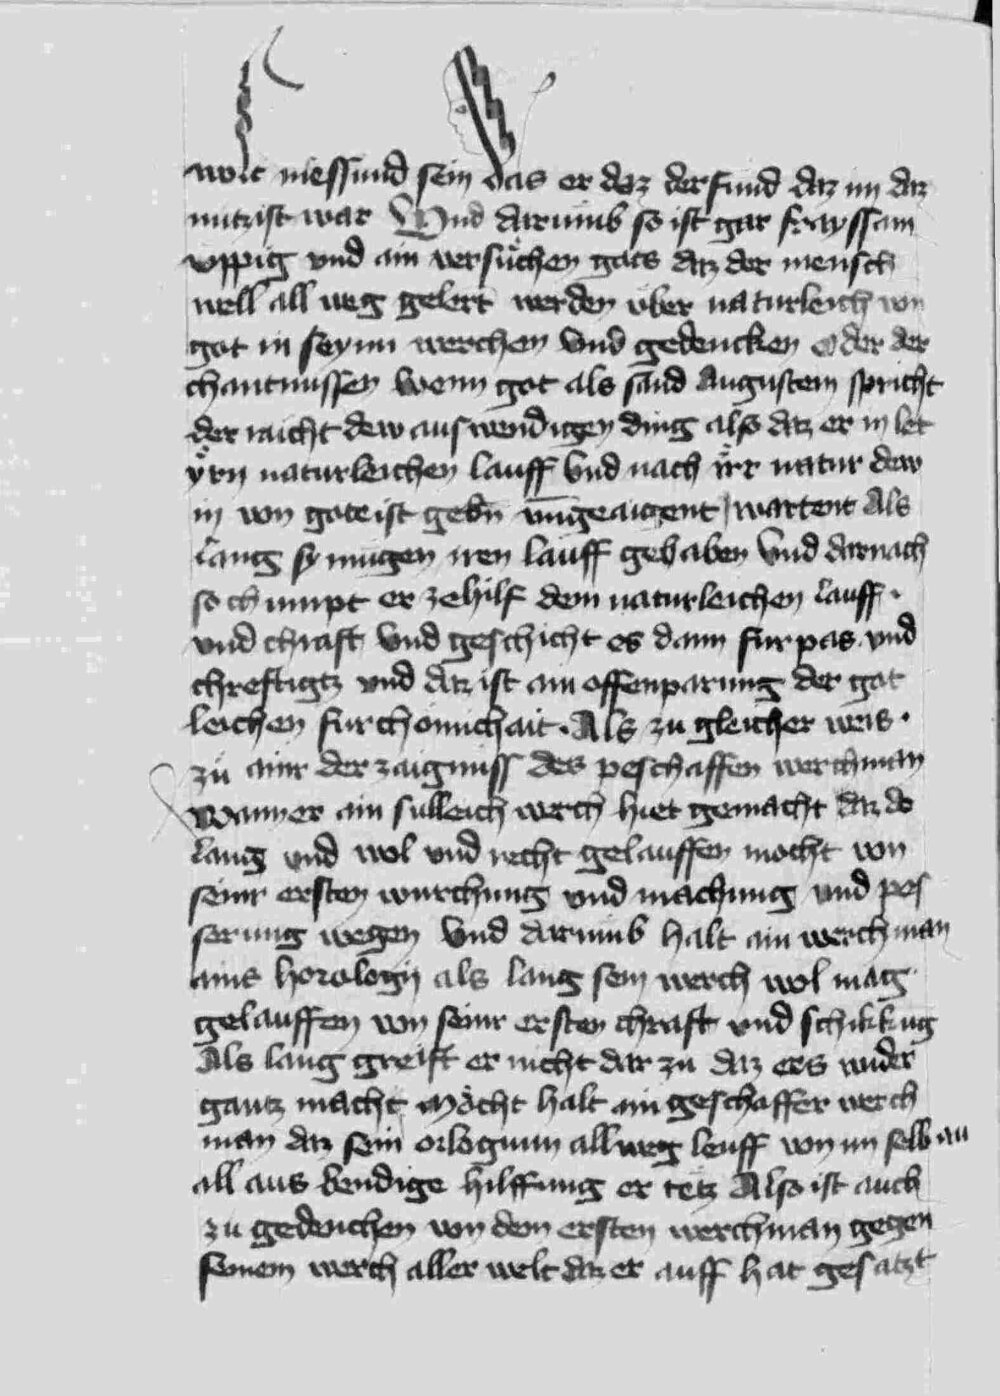 wolt niessund sein das er daz der fund daz im daz
nutzist war Und darumb so ist gar frayssam
uppig und ain versuͤchen gots daz der mensch
well all weg gelert werden uͤber naturleich von
got in seynn werchen und gedencken oder der
chantnussen wenn got als sand Augustein spricht
der raicht dew auswendigen ding also daz er in let
yͤrn naturleichen lauff und nach irr natur dew
in von gote ist gebn̄ ungeaigent wartent Als
lang sy mugen iren lauff gehaben und darnach
so chumpt er zehilf dem naturleichen lauff.
und chraft und geschicht es dann furpas und
chreftigtz und daz ist ain offenparung der got
leichen furchomichait. Als zu gleicher weis.
zu ainr derzaigniss des peschaffen werchman
wann er ain sulleich werch hiet gemacht daz do
lang und wol und recht gelauffen mocht von
seinr ersten wurchung und machung und pes
serung wegen Und darumb halt ain werchman
ains horologij als lang sein werch wol mag
gelauffen von seinr ersten chraft und schikkug
Als lang greift er nicht dar zu daz ers wider
gantz macht Moͤcht halt ain geschaffer werch
man daz sein orlogium allweg leuff von im selb an
all aus bendige hilffung er tetz Also ist auch
zu gedenchen von dem ersten werchman gegen
seinem werch aller welt daz er auff hat gesatzt